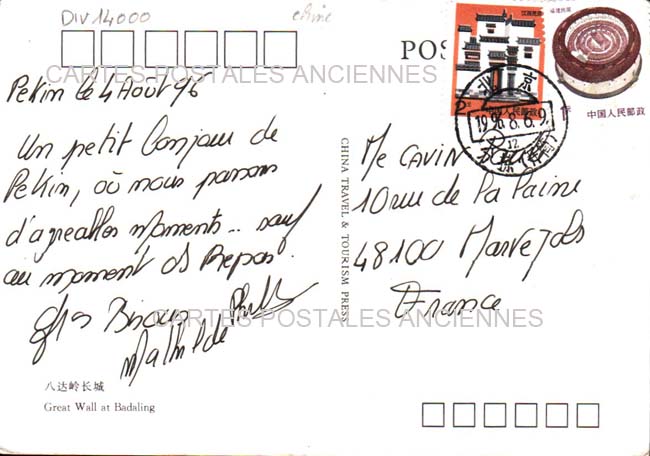 DIV 14000
chine
POS
江西民居
福建民居
中国人民邮政
中国人民邮政
北京
1996.8.6.9
12
CARTES POSTALES ANCIENNES
Pekin le 4 Août 96
Un petit Bonjour de
Pekin, où nous passons
d'agréables moments.. sauf
au moment des Repas.
Gros Bisous
Mathilde
CHINA TRAVEL & TOURISM PRESS
Me CAVIN
10 rue de la Paine
48100 Marvejols
France
CARTES POSTALES ANCIENNES
八达岭长城
Great Wall at Badaling